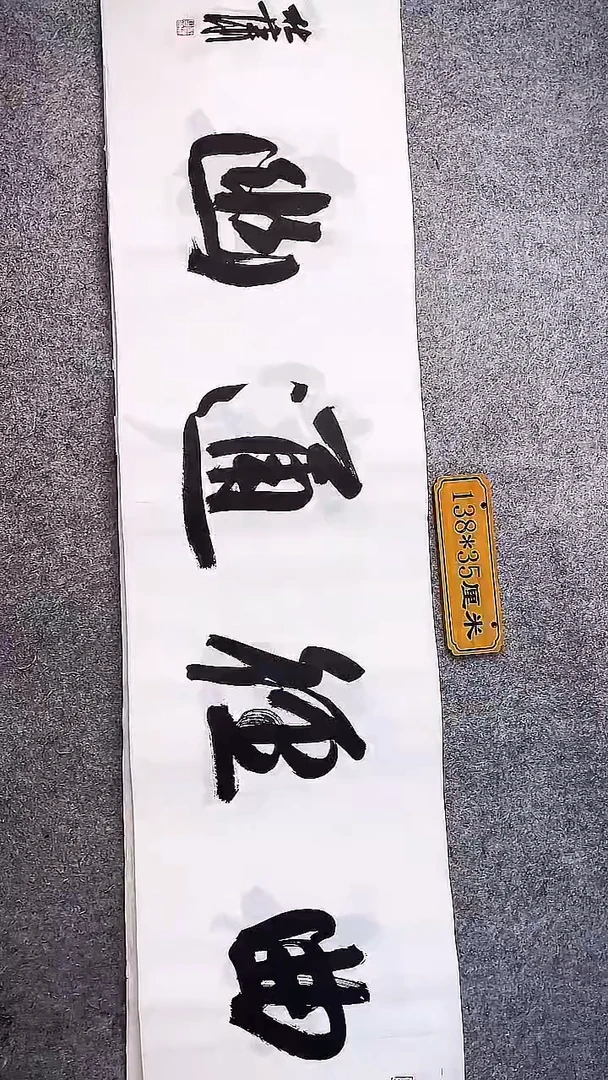 曲径通幽
138*35厘米